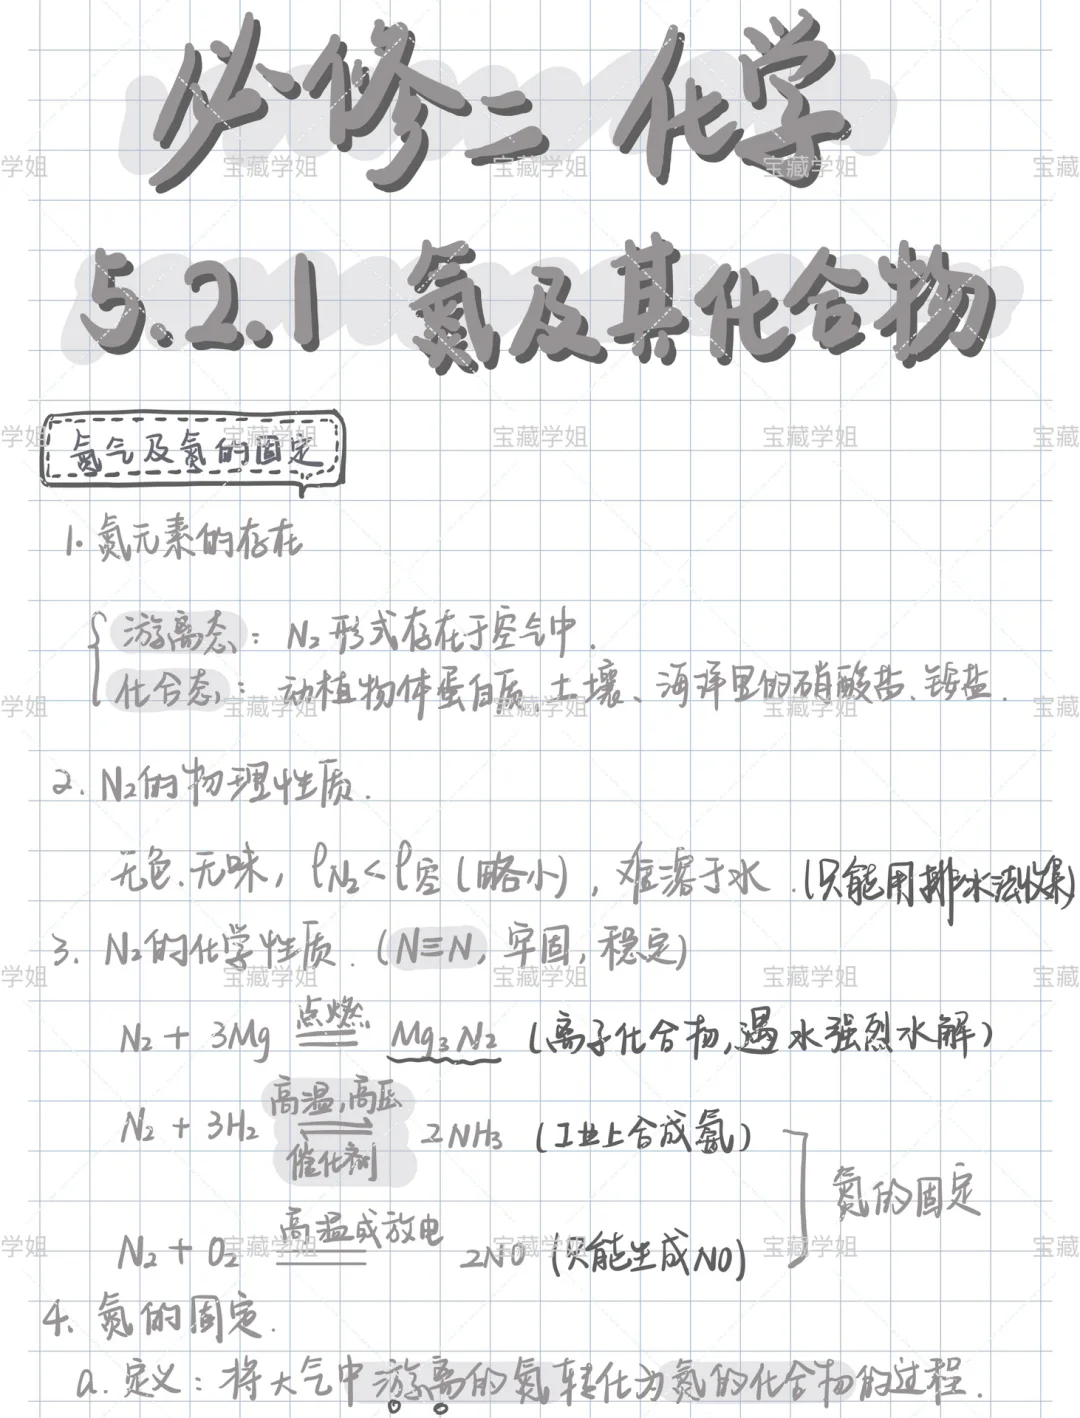 必修二 化学
5.2.1 氮及其化合物
氮气及氮的固定
1. 氮元素的存在
游离态: N₂形式存在于空气中.
化合态: 动植物体蛋白质、土壤、海洋里的硝酸盐、铵盐.
2. N₂的物理性质.
无色、无味, ρN₂<ρ空(略小), 难溶于水. (只能用排水法收集)
3. N₂的化学性质. (N≡N, 牢固, 稳定)
点燃
N₂ + 3Mg ══ Mg₃N₂ (离子化合物, 遇水强烈水解)
高温,高压
N₂ + 3H₂ ⇌ 2NH₃ (工业上合成氨)
催化剂
氮的固定
高温或放电
N₂ + O₂ ══ 2NO (只能生成NO)
4. 氮的固定.
a. 定义: 将大气中游离的氮转化为氮的化合物的过程.
宝藏学姐